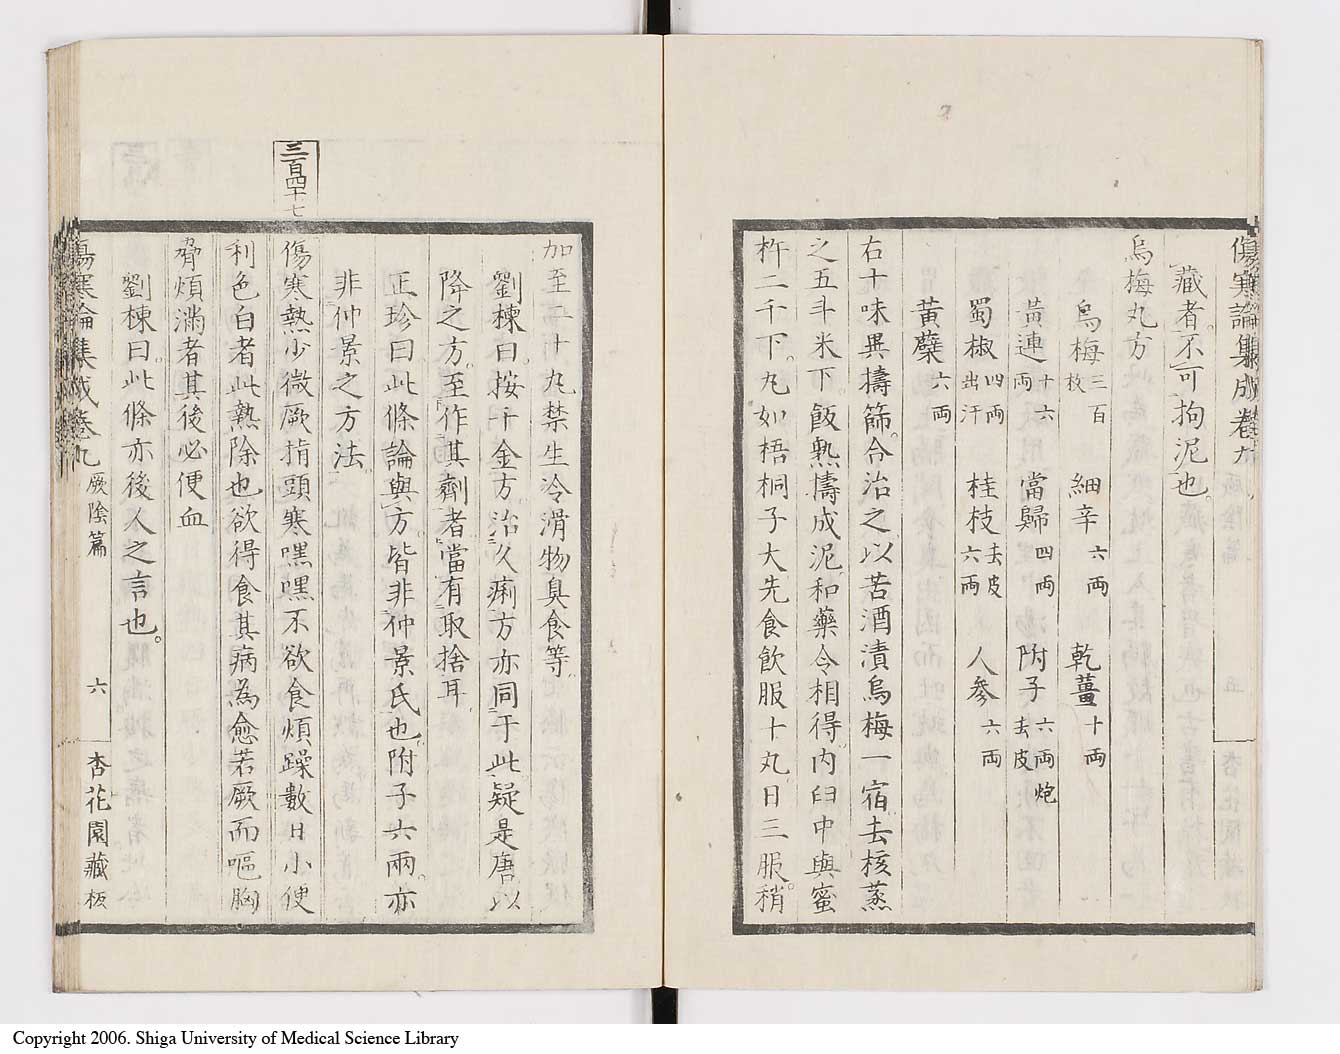 傷寒論集成卷九
藏者。不可拘泥也。
烏梅丸方
烏梅三百枚 細辛六兩 乾薑十兩
黃連十六兩 當歸四兩 附子六兩炮去皮
蜀椒四兩出汗 桂枝去皮六兩 人參六兩
黃蘗六兩
右十味異擣篩。合治之。以苦酒漬烏梅一宿。去核蒸
之五斗米下。飯熟擣成泥和藥令相得。內臼中與蜜
杵二千下。丸如梧桐子大先食飲服十丸。日三服。稍
加至二十丸禁生冷滑物臭食等。
劉棟曰。按千金方。治久痢方亦同于此疑是唐以
降之方。至作其劑者當有取捨耳
正珍曰此條論與方。皆非仲景氏也。附子六兩。亦
非仲景之方法。
三百四十七
傷寒熱少微厥指頭寒嘿嘿不欲食煩躁數日小便
利色白者此熱除也欲得食其病為愈若厥而嘔胸
脅煩滿者其後必便血
劉棟曰。此條亦後人之言也。
傷寒論集成卷九 厥陰篇 六 杏花園藏板
Copyright 2006. Shiga University of Medical Science Library